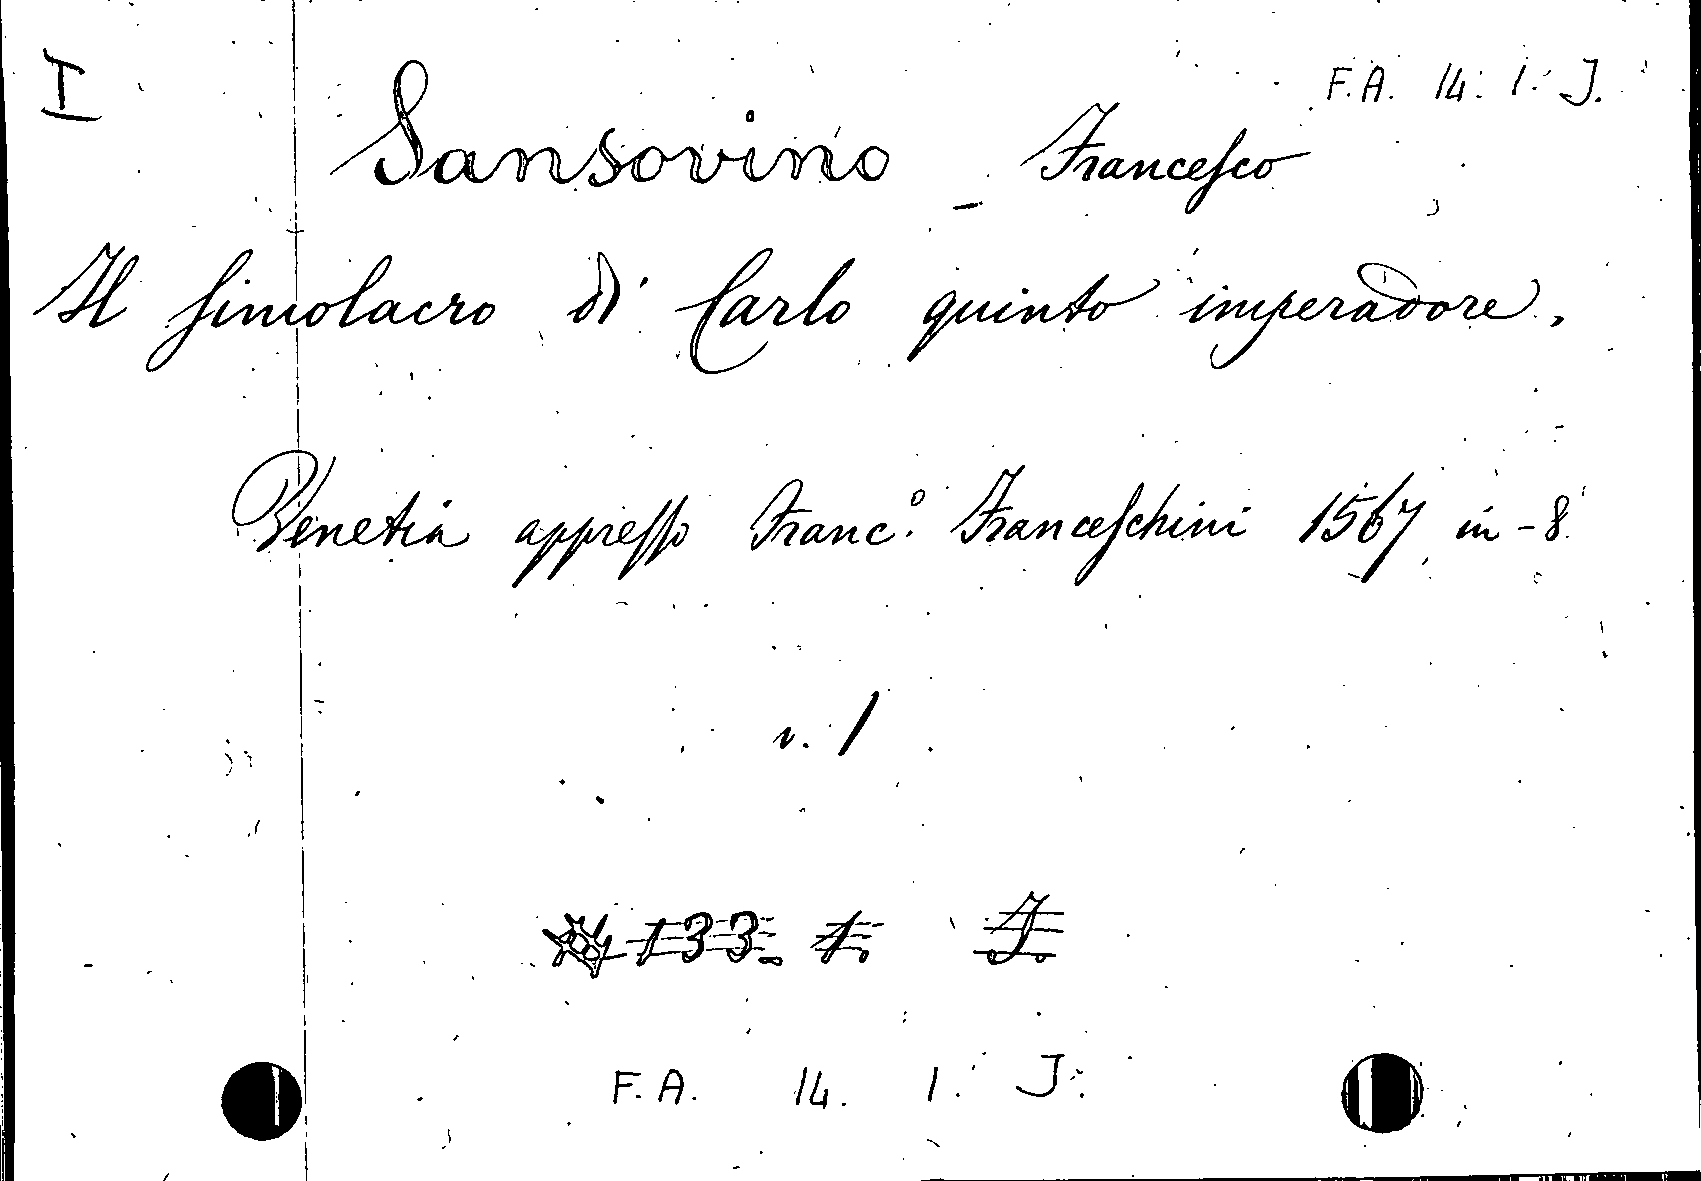 I
F.A. 14. 1. J.
Sansovino - Francesco
Il simolacro di Carlo quinto imperadore,
Venetia appresso Franc.º Franceschini 1567 in-8
v. 1
133. 1. J
F.A. 14. 1. J.